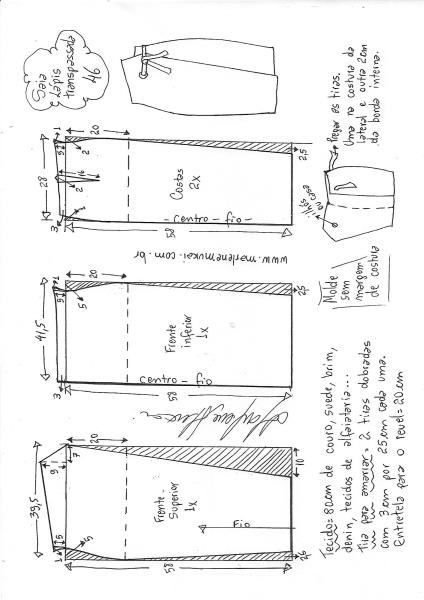 Saia
Lápis
transpassada
46
28
1
9
3
20
2
16
2
1
2,5
Costas
2x
Centro - fio
58
www.marlenemukai.com.br
Pregar as tiras.
Uma na costura da
lateral e outra 2cm
da borda interna.
ilhós
ou
casa
Molde
sem
margem
de costura
41,5
1
9
3
20
5
2,5
Frente
inferior
1x
Centro - fio
58
39,5
9
1
7
20
5
5
10
Frente
Superior
1x
Fio
58
Tecido = 80cm de couro, suede, brim,
denin, tecidos de alfaiataria...
Tira para amarrar = 2 tiras dobradas
com 3cm por 25cm cada uma.
Entretela para o revel = 20cm